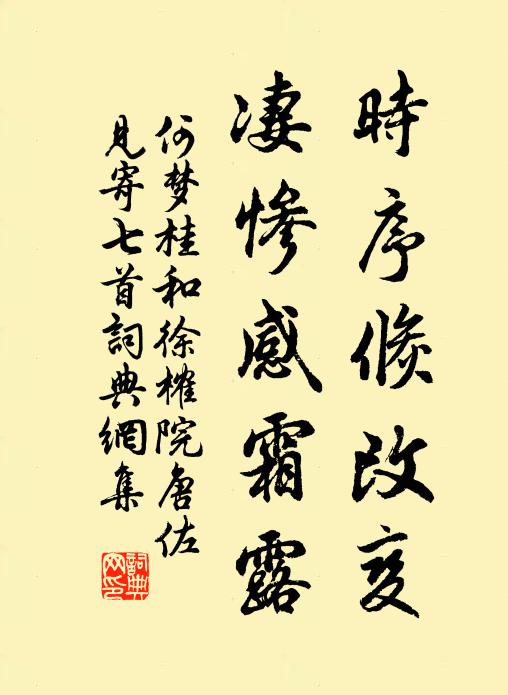 時序倏改变
凄惨感霜露
何梦桂和徐榷院唐佐
見寄七首詞典網集
詞典网印